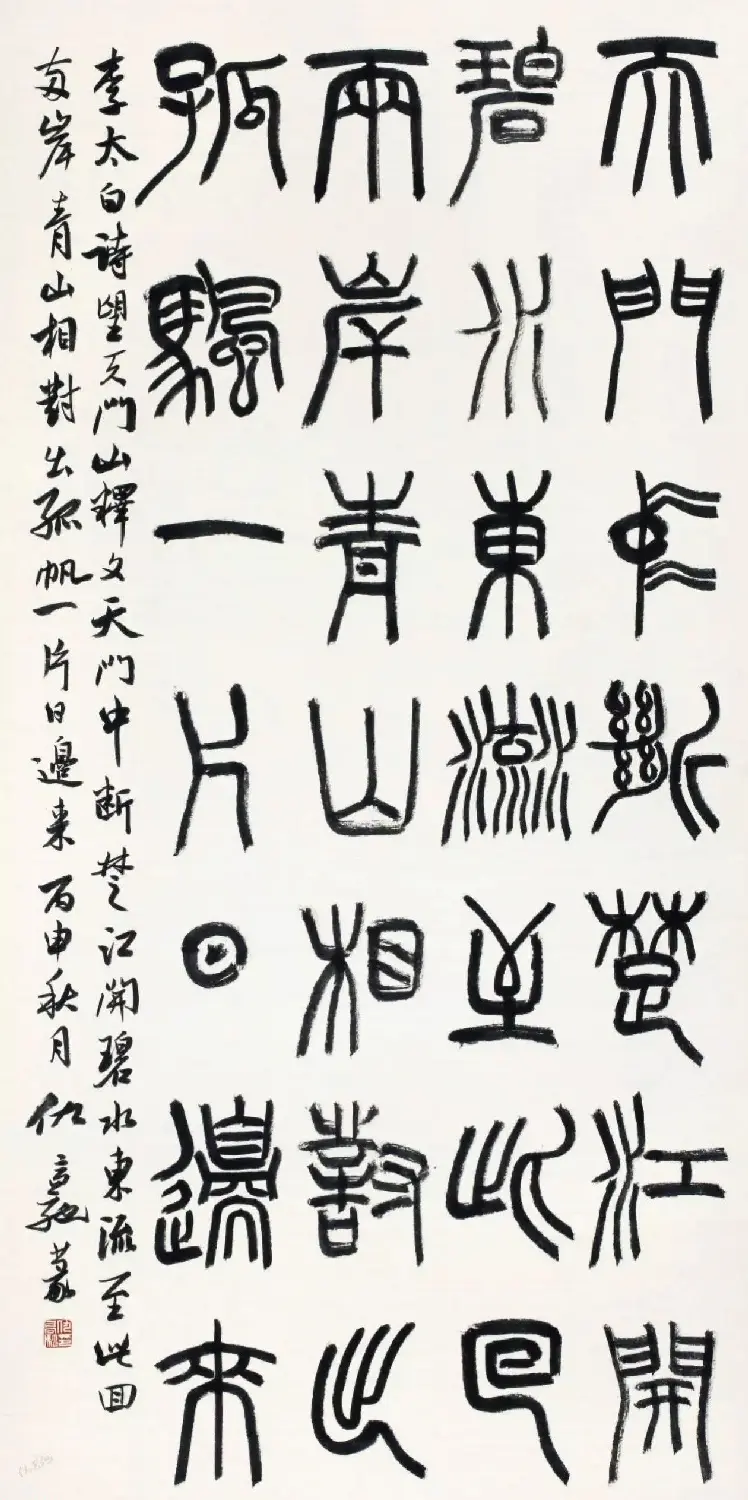 天門中斷楚江開
碧水東流至此回
兩岸青山相對出
孤颿一片日邊來
李太白詩望天門山釋文天門中断楚江開碧水東流至此回
兩岸青山相對出孤帆一片日邊來丙申秋月仇高馳篆